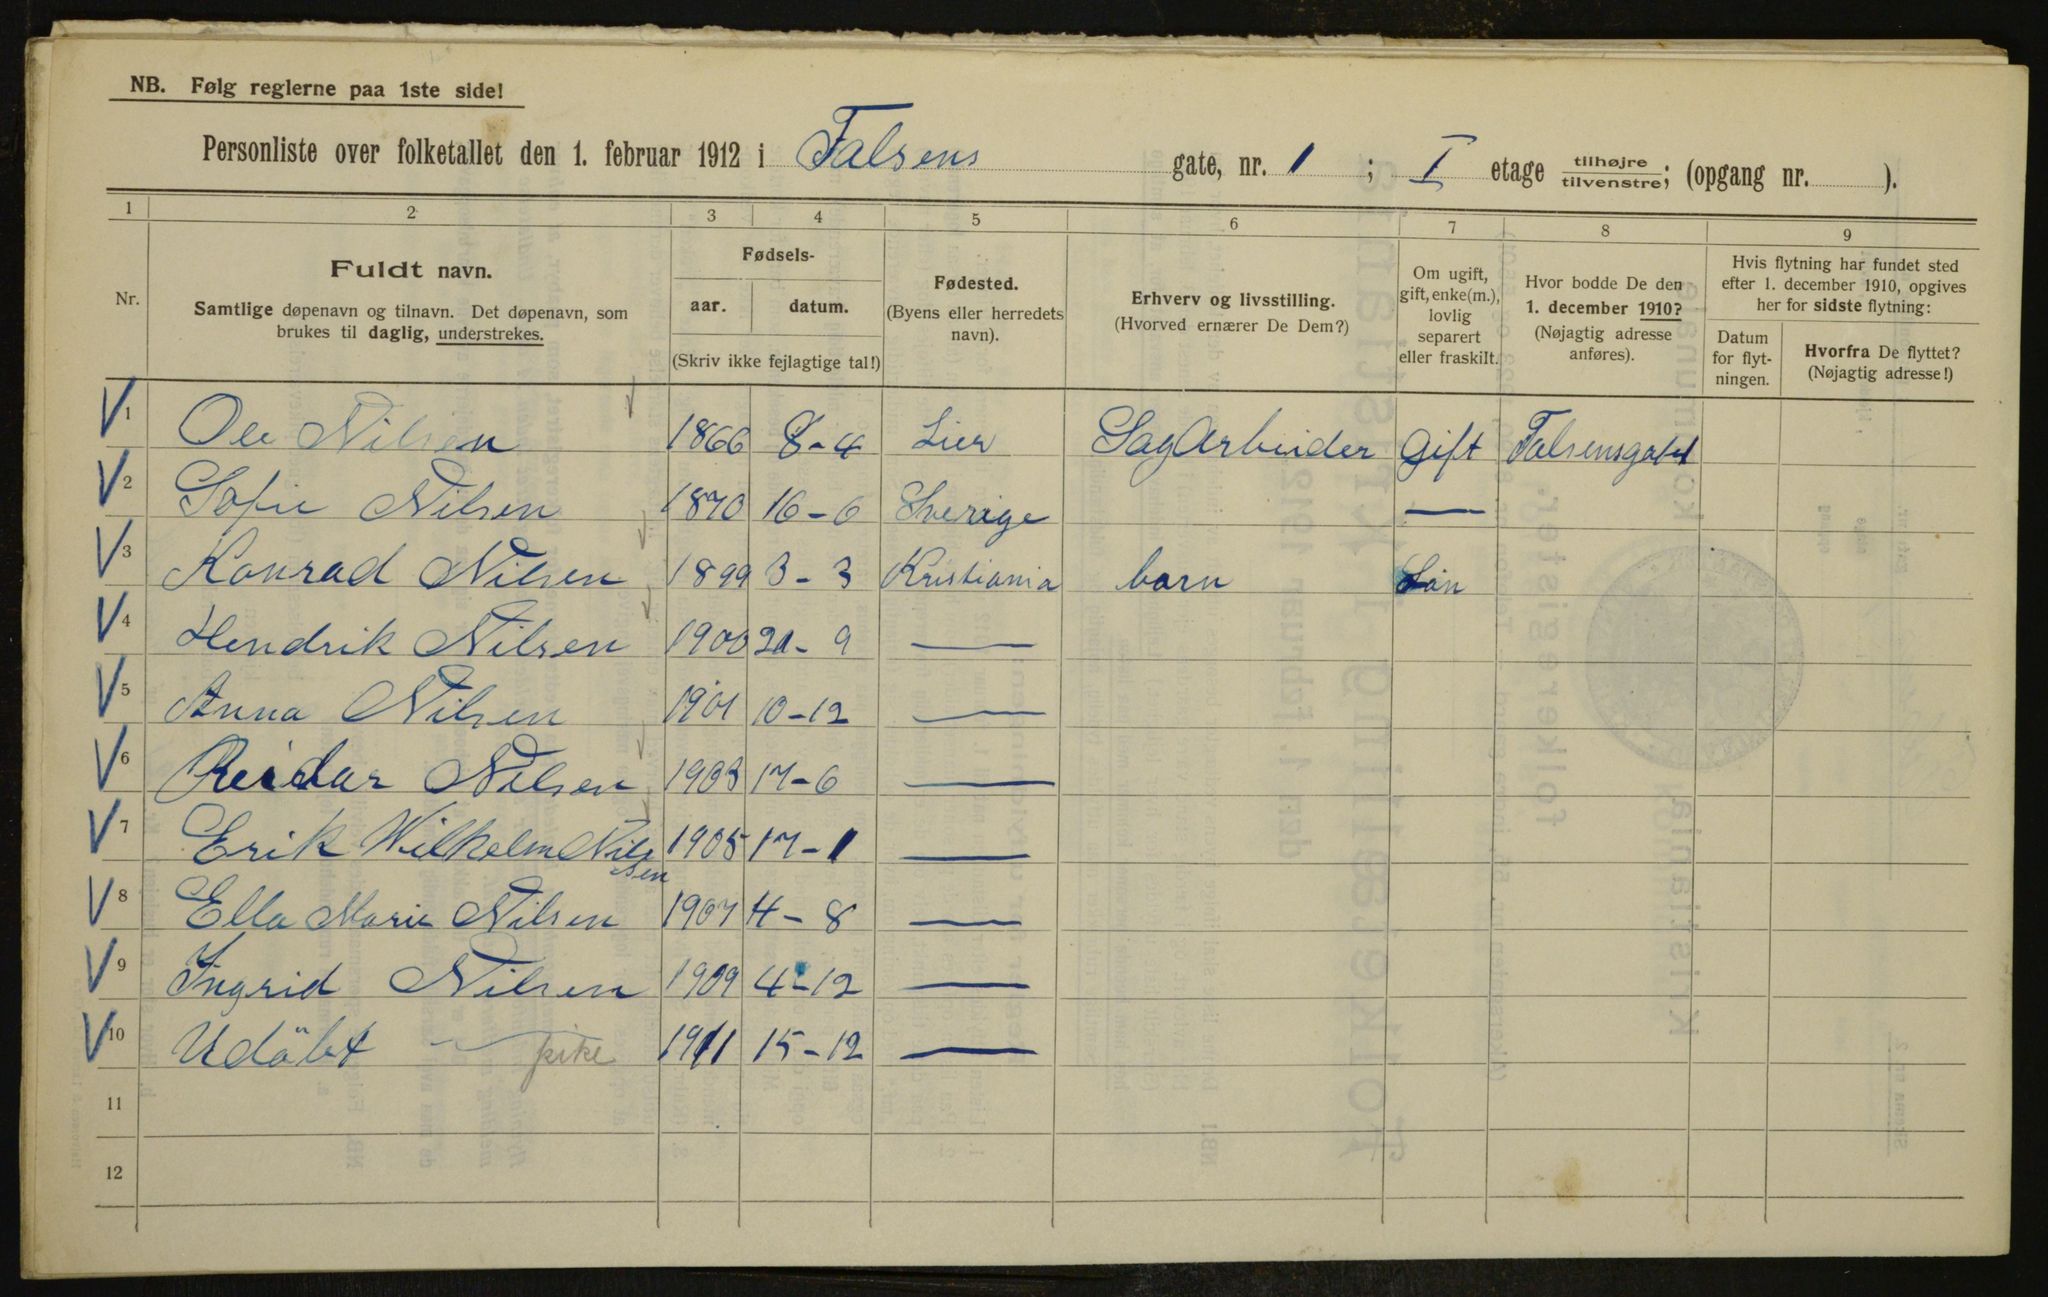 NB. Følg reglerne paa 1ste side!
Personliste over folketallet den 1. februar 1912 i Falsens gate, nr. 1 ; I etage tilhøjre/tilvenstre; (opgang nr. ).
1 2 3 4 5 6 7 8 9
Nr.
Fuldt navn.
Samtlige døpenavn og tilnavn. Det døpenavn, som
brukes til daglig, understrekes.
Fødsels-
aar. datum.
(Skriv ikke fejlagtige tal!)
Fødested.
(Byens eller herredets
navn).
Erhverv og livsstilling.
(Hvorved ernærer De Dem?)
Om ugift,
gift, enke(m.),
lovlig
separert
eller fraskilt.
Hvor bodde De den
1. december 1910?
(Nøjagtig adresse
anføres).
Hvis flytning har fundet sted
efter 1. december 1910, opgives
her for sidste flytning:
Datum
for flyt-
ningen.
Hvorfra De flyttet?
(Nøjagtig adresse!)
1 Ole Nilsen 1866 8-4 Lier SagArbeider Gift Falsensgate 1
2 Sofie Nilsen 1870 16-6 Sverige —
3 Konrad Nilsen 1899 3-3 Kristiania barn
4 Hendrik Nilsen 1900 21-9 —
5 Anna Nilsen 1901 10-12 —
6 Reidar Nilsen 1903 17-6 —
7 Erik Wilhelm Nilssen 1905 17-1 —
8 Ella Marie Nilsen 1907 4-8 —
9 Ingrid Nilsen 1909 4-12 —
10 Udöbt — pike 1911 15-12 —
11
12